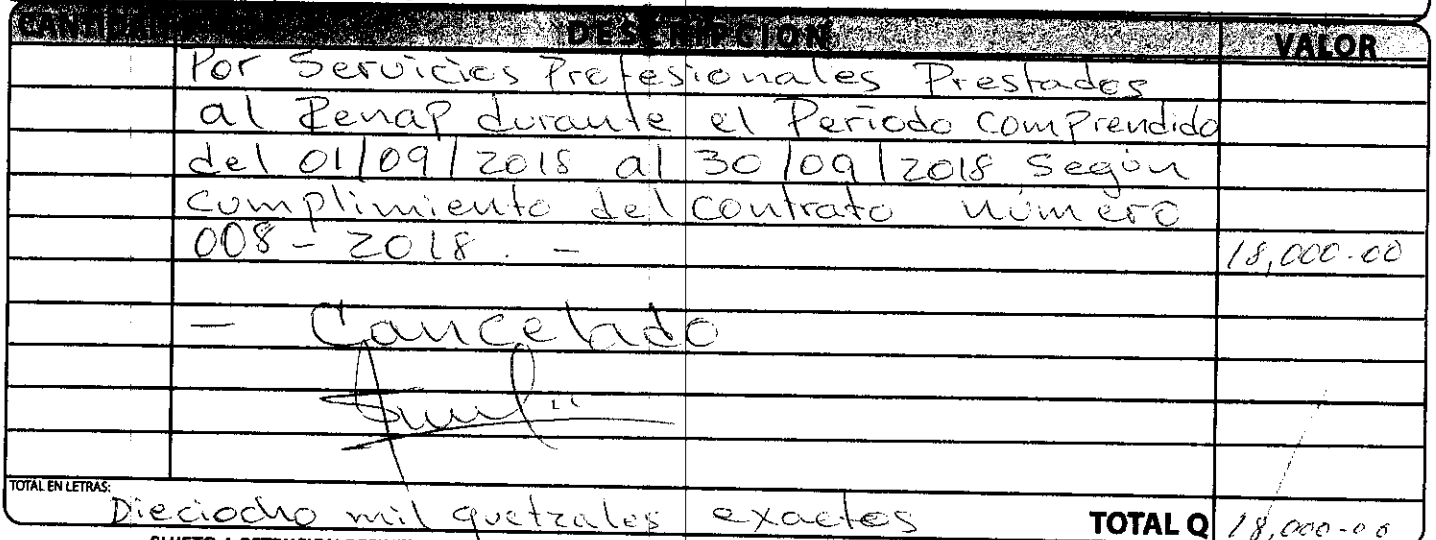 CANTIDAD DESCRIPCION VALOR
Por Servicios Profesionales Prestados
al Renap durante el Período comprendido
del 01/09/2018 al 30/09/2018 según
cumplimiento del contrato número
008-2018. - 18,000.00
- Cancelado
TOTAL EN LETRAS:
Dieciocho mil quetzales exactos TOTAL Q 18,000.00